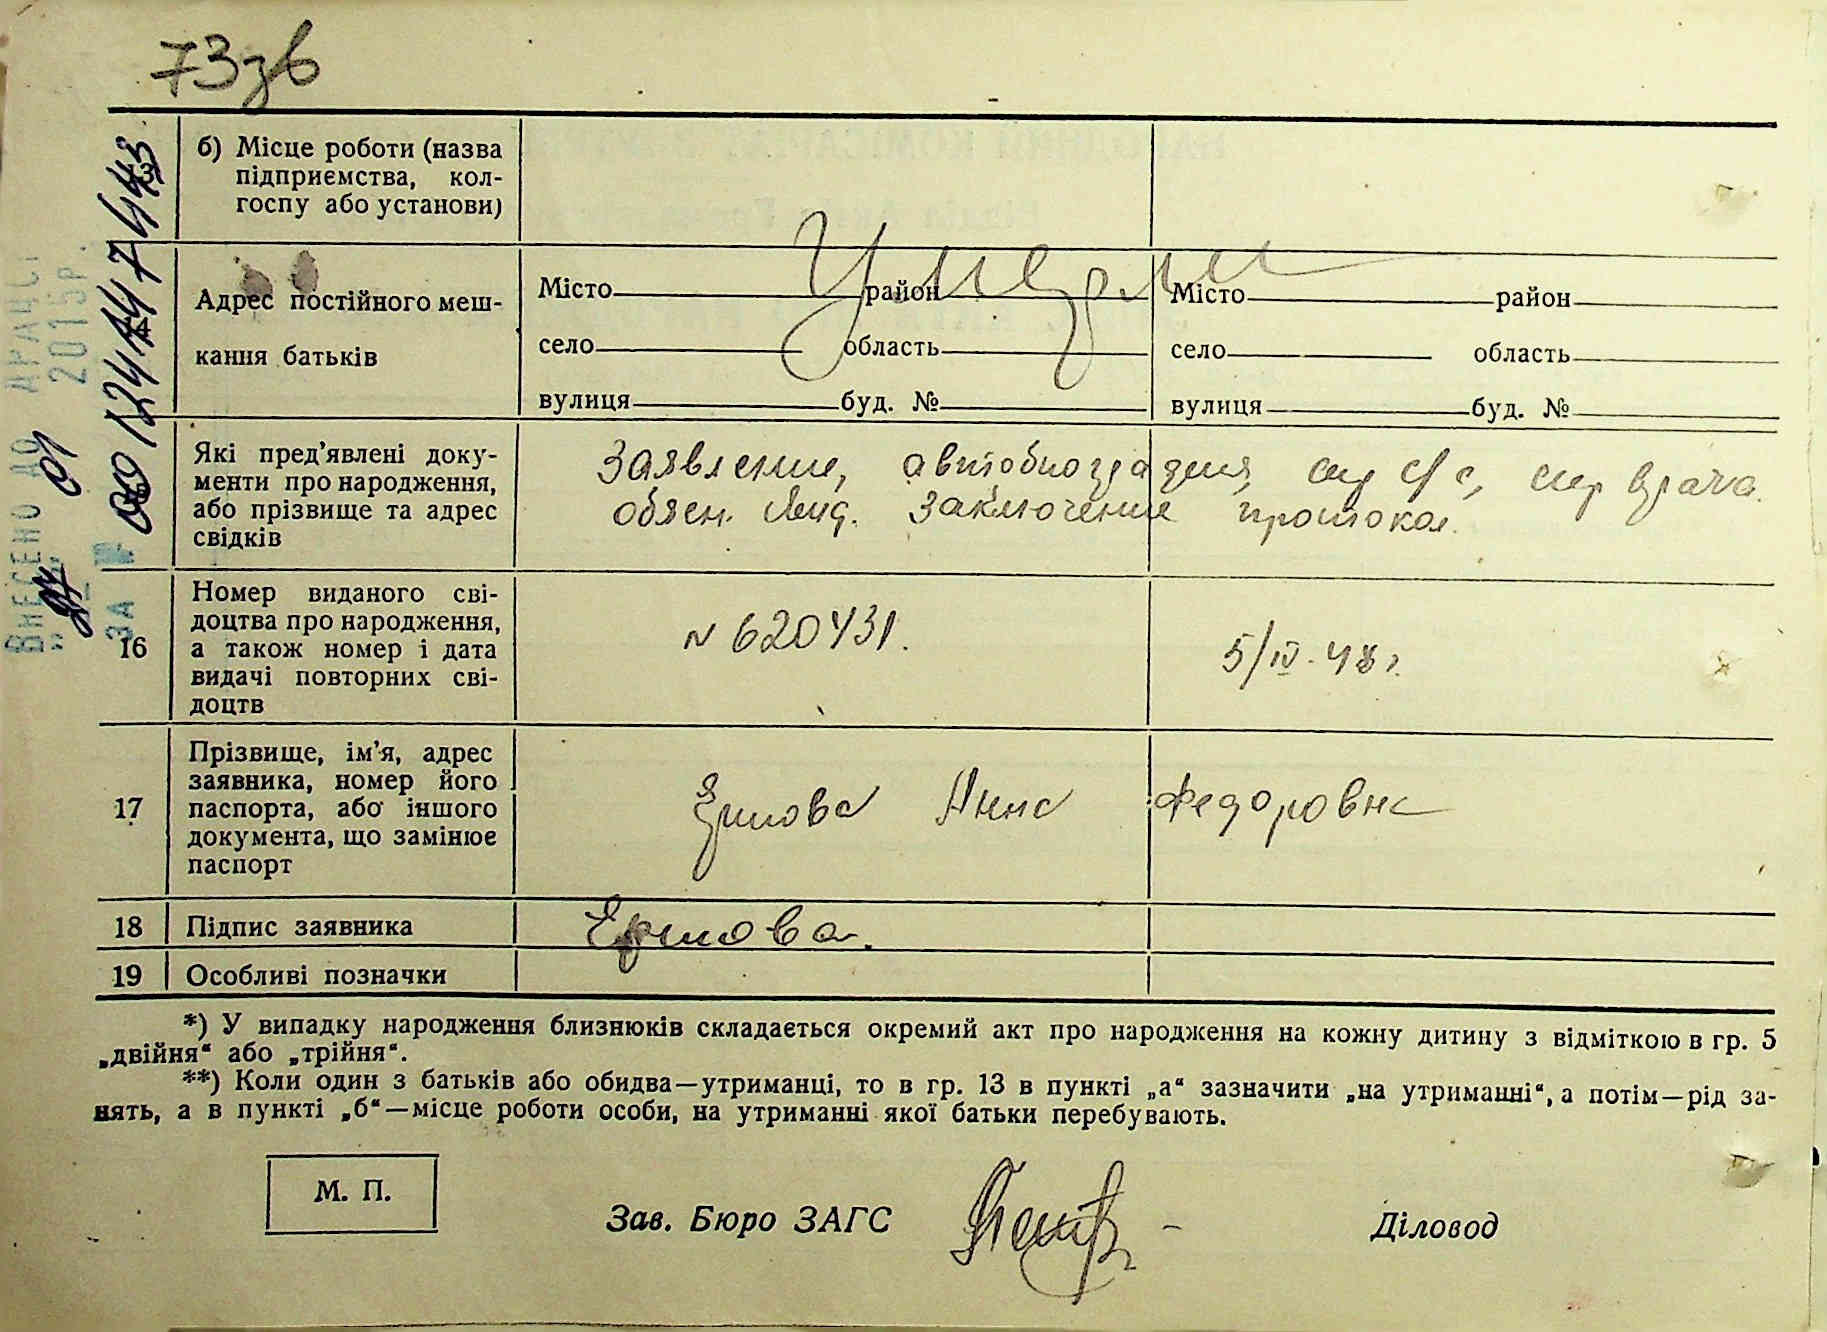 73зв
б) Місце роботи (назва
підприємства, кол-
госпу або установи)
Умерли
Адрес постійного меш-
кання батьків
Місто район
село область
вулиця буд. №
Місто район
село область
вулиця буд. №
Які пред’явлені доку-
менти про народження,
або прізвище та адрес
свідків
Заявление, автобиография, спр с/с, спр врача.
обяз. заключение протокол.
16
Номер виданого сві-
доцтва про народження,
а також номер і дата
видачі повторних сві-
доцтв
N 620431.
5/IV-48 г.
17
Прізвище, ім’я, адрес
заявника, номер його
паспорта, або іншого
документа, що замінює
паспорт
Ершова Анна Федоровна
18 Підпис заявника
Ершова.
19 Особливі позначки
*) У випадку народження близнюків складається окремий акт про народження на кожну дитину з відміткою в гр. 5
„двійня“ або „трійня“.
**) Коли один з батьків або обидва—утриманці, то в гр. 13 в пункті „а“ зазначити „на утриманні“, а потім—рід за-
нять, а в пункті „б“—місце роботи особи, на утриманні якої батьки перебувають.
М. П.
Зав. Бюро ЗАГС
Діловод
ВНЕСЕНО ДО ДРАЦСГ
" 01 2015р.
ЗА № 00124447443